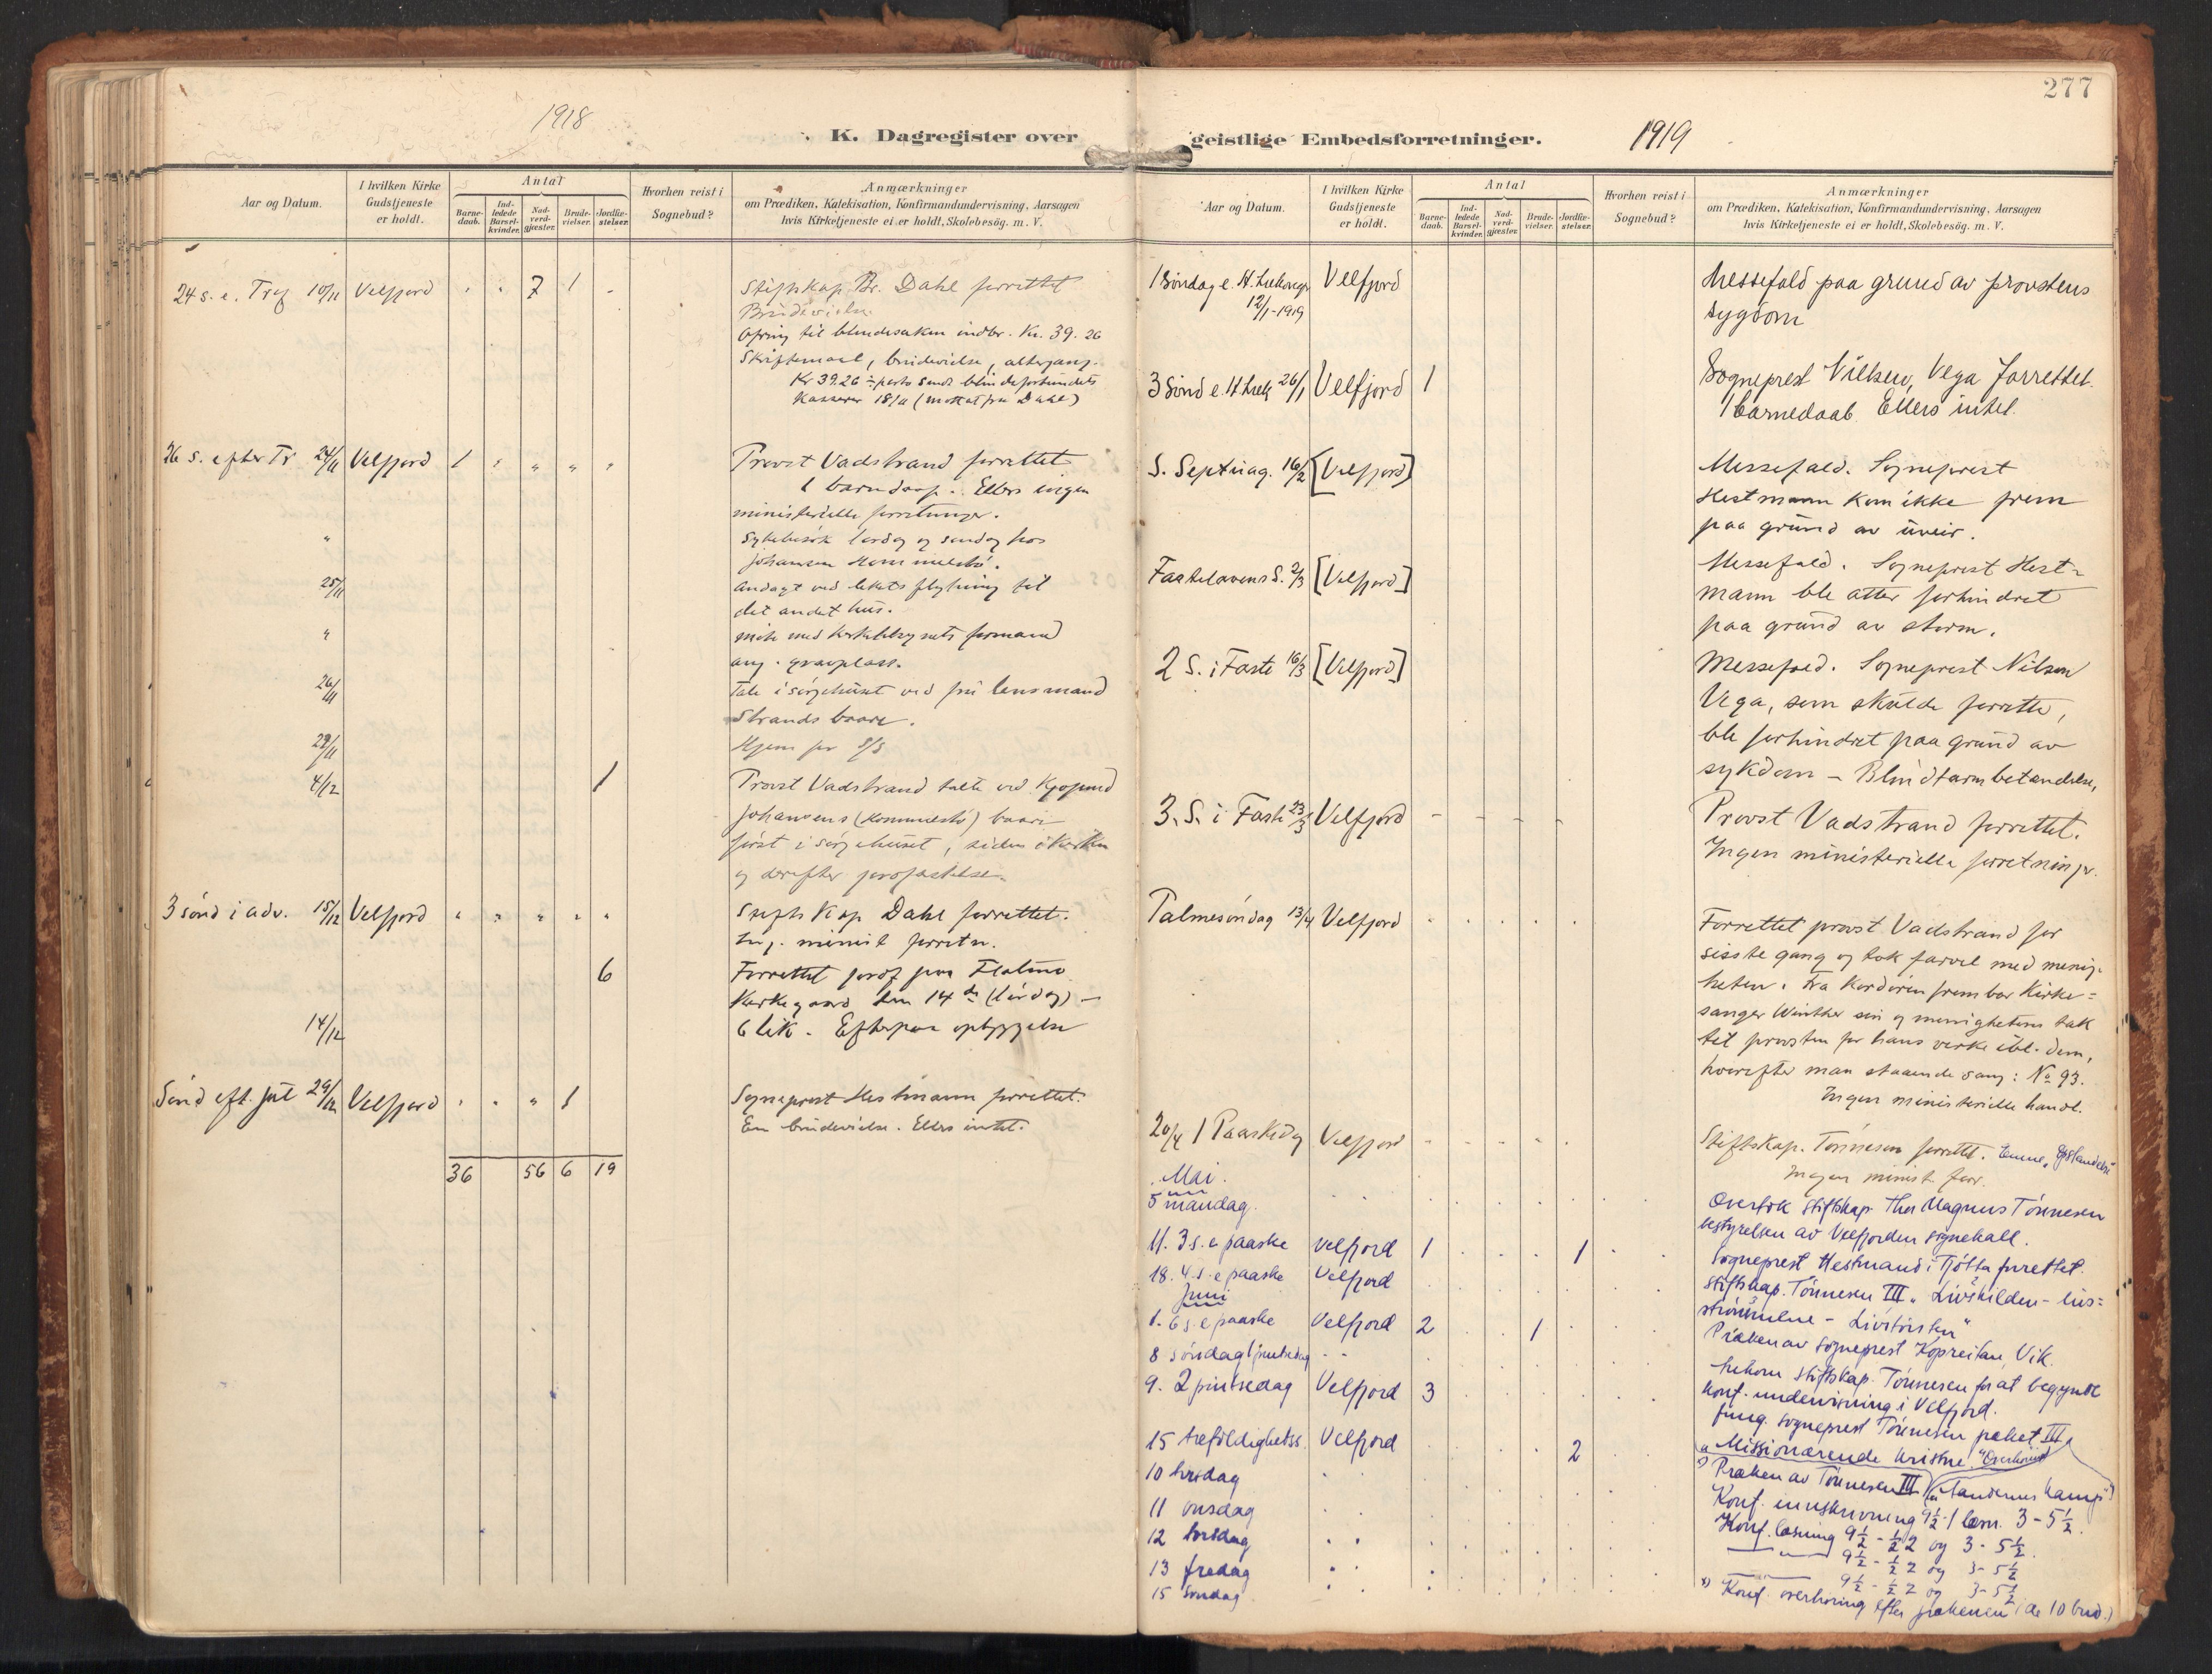 1918
K. Dagregister over
Aar og Datum.
I hvilken Kirke Gudstjeneste er holdt.
Antal
Barne-daab.
Ind-ledede Barsel-kvinder.
Nad-verd-gjæster.
Brude-vielser.
Jordfæ-stelser.
Hvorhen reist i Sognebud?
Anmærkninger
om Prædiken, Katekisation, Konfirmandundervisning, Aarsagen
hvis Kirketjeneste ei er holdt, Skolebesög. m. V.
24 s. e. Tref 10/11 Velfjord " " 7 1 "
Stiftskap. Br. Dahl forrettet
Brudevielse
Ofring til blindesaken indbr. Kr. 39.26
Skriftemaal, brudevielse, altergang.
Kr 39.26 ÷ porto sendt blindeforbundets
Kasserer 18/11 (mottat fra Dahl)
26 s. efter Tr. 24/11 Velfjord 1 " " " "
Provst Vadstrand forrettet
1 barnedaap. Ellers ingen
ministerielle forretninger.
" Sykebesök lördag og söndag hos
Johansen
25/11 Andagt ved likets flytning til
det andet hus.
" Möte med kirketilsynets formand
ang. gravplass.
26/11 Tale i sörgehuset ved fru lensmand
Strands baare.
29/11 Hjem per D/S
4/12 1 Provst Vadstrand talte ved
Johansens baare
först i sörgehuset, siden i Kirken
og derefter jordfæstelse.
3 sönd i adv. 15/12 Velfjord " " " " "
Stifts Kap Dahl forrettet.
Ing. minist forretn.
6 Forrettet jordf. paa
Kirkegaard den 14de (Lördag) —
14/12 6 lik. Efterpaa opbyggelse
Sönd eft. jul 29/12 Velfjord " " " 1
Sogneprest Hestmann forrettet.
En brudevielse. Ellers intet.
36 56 6 19
277
geistlige Embedsforretninger.
1919
Aar og Datum.
I hvilken Kirke Gudstjeneste er holdt.
Antal
Barne-daab.
Ind-ledede Barsel-kvinder.
Nad-verd-gjæster.
Brude-vielser.
Jordfæ-stelser.
Hvorhen reist i Sognebud?
Anmærkninger
om Prædiken, Katekisation, Konfirmandundervisning, Aarsagen
hvis Kirketjeneste ei er holdt, Skolebesög. m. V.
1 Söndag e. H. trekonger 12/1-1919 Velfjord
Messefald paa grund av provstens
sygdom
3 Sönd e. H. trek 26/1 Velfjord 1
Sogneprest Nilsen, Vega forrettet.
1 barnedaab. Ellers intet.
S. Septuag. 16/2 [Velfjord]
Messefald. Sogneprest
Hestmann kom ikke frem
paa grund av uveir.
Fastelavens S. 2/3 [Velfjord]
Messefald. Sogneprest Hest-
mann ble atter forhindret
paa grund av storm.
2 S. i Faste 16/3 [Velfjord]
Messefald. Sogneprest Nilsen
Vega, som skulde forrette,
ble forhindret paa grund av
sykdom – Blindtarmbetændelse,
3. S. i Faste 23/3 Velfjord - - - -
Provst Vadstrand forrettet.
Ingen ministerielle forretninger.
Palmesöndag 13/4 Velfjord " " " " "
Forrettet provst Vadstrand for
sisste gang og tok farvel med menig-
heten. Fra Kordören frembar Kirke-
sanger Winther sin og menighetens tak
til provsten for hans virke ibl. dem,
hvorefter man staaende sang: No 93.
Ingen ministerielle handl.
20/4 1 Paaskedag Velfjord - - - - -
Stiftskap. Tönnesen forrettet. Emne
Ingen minist. forr.
Mai.
5 mandag. Overtok Stiftskap. Thor Magnus Tönnesen
bestyrelsen av Velfjorden sognekall.
11. 3 s. e paaske Velfjord 1 . . . 1
Sogneprest Hestmand i Tjötta forrettet.
18. 4. s. e paaske Velfjord
Stiftskap. Tönnesen III. "Livskilden – livs-
strömmene – Livstörsten"
Juni
1. 6 s. e paaske Velfjord 2 . . 1
Præken av sogneprest Kopreitan, Vik.
8 söndag 1 pintsedag - -
Ankom Stiftskap. Tönnesen for at begynde
konf. undervisning i Velfjord.
9. 2 pintsedag Velfjord 3
Fung. sogneprest Tönnesen præket III
"Missionærende kristne."
15 trefoldighetss. Velfjord 2
x) Præken av Tönnesen III ("Aandernes kamp")
10 tirsdag Konf. innskrivning 9½-1 læsn. 3-5½.
11 onsdag Konf. læsning 9½-½2 og 3-5½.
12 torsdag —"— 9½-½2 og 3-5½
13 fredag —"— 9½-½2 og 3-5½
15 söndag x) Konf. overhöring efter prækenen (de 10 bud.)